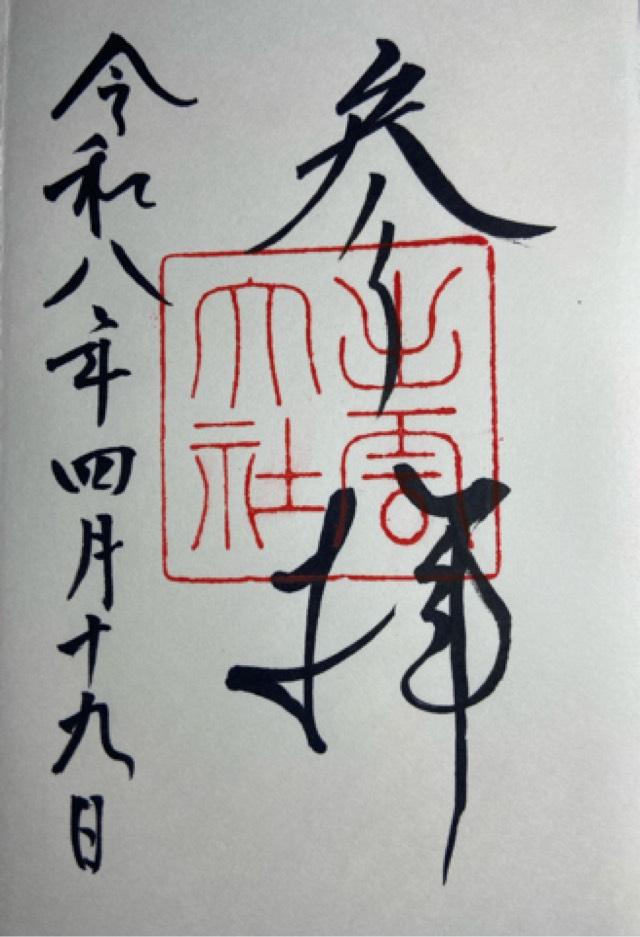 参拝
出雲
大社
令和八年四月十九日